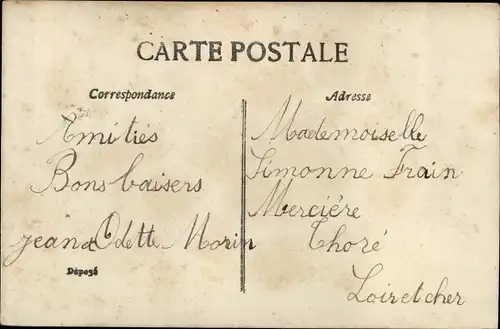 CARTE POSTALE
Correspondance
Amitiés
Bons baisers
jean & Odette Morin
Déposé
Adresse
Mademoiselle
Simonne Frain
Merciére
Thoré
Loir et cher